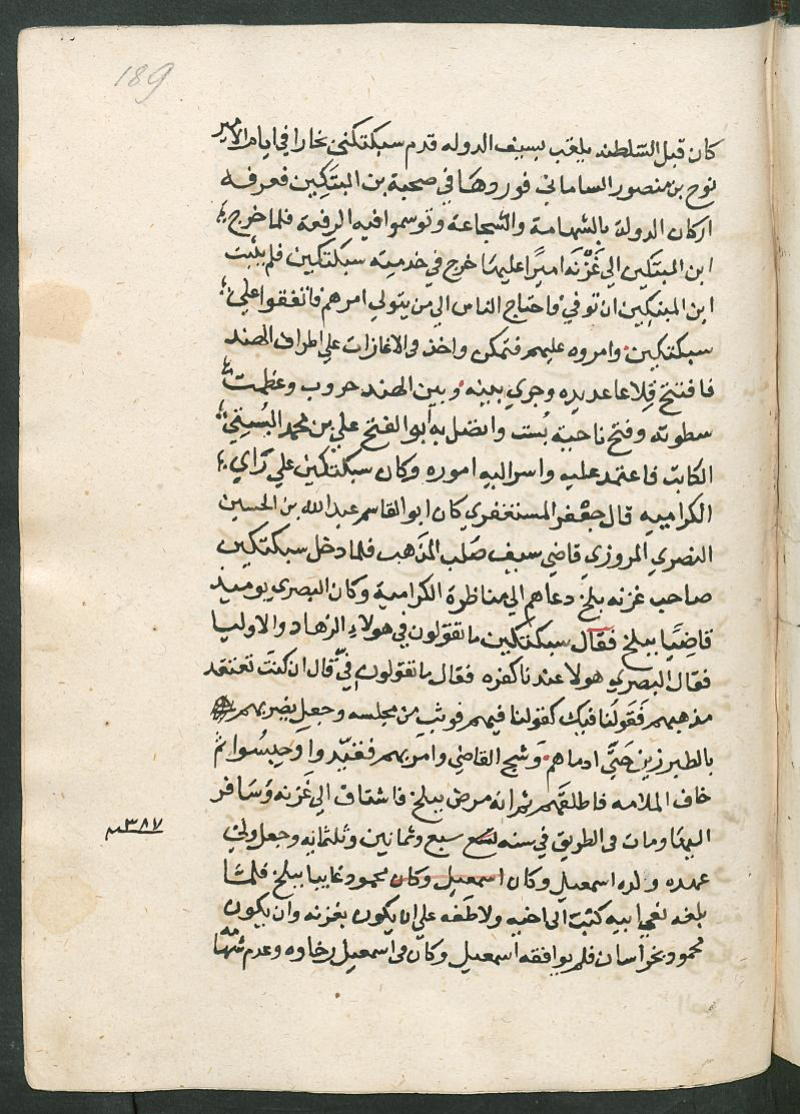 189
كان قبل السلطنه يلقب بسيف الدوله قدم سبكتكني بخارا في ايام الامير
نوح بن منصور الساماني فوروها في صحبة بن البتكين فعرفه
اركان الدولة بالشهامة والشجاعة وتوسموا فيه الرفعة فلما خرج
ابن البتكين الي غَزْنَه اميرًا عليها خرج في خدمته سبكتكين فلم يلبث
ابن البتكين ان توفي فاحتاج الناس الي من يتولي امرهم فاتفقوا علي
سبكتكين وامروه عليهم فتمكن واخذ في الاغارات علي اطراف الهند
فافتتح قلاعا عديده وجري بينه وبين الهند حروب وعظمت
سطوته وفتح ناحية بُست واتصل به أبو الفتح علي بن محمد البُستِي
الكاتب فاعتمد عليه واسر اليه اموره وكان سبكتكين علي رَاي
الكراميه قال جعفر المستغفري كان ابو القاسم عبد الله بن الحسين
النصري المروزي قاضي سيف صَلب المذهب فلما دخل سبكتكين
صاحب غزنه بلخ دعاهم الي مناظرة الكرامية وكان البصري يوميذ
قاضِيًا ببلخ فقال سبكتكين ما تقولون في هولاءِ الزهاد والاوليا
فقال البصري هولا عندنا كفره فقال ما تقولون فيّ قال ان كنتَ تعتقد
مذهبهم فَقَولَنا فيك كقولنا فيهم فوثب من مجلسه وجعل يضربهم
بالطبرزين حَتَّي ادماهم وشج القاضي وامر بهم فقيّدوا وحبِسُوا ثم
خاف الملامه فاطلقهم ثم انه مرض ببلخ فاشتاق الي غَزنه وَسَافر
اليها ومات في الطريق في سنه تسع سبع وثمانين وثلثمايه وجعل ولي
٣٨٧
عهده ولده اسمعيل وكان اسمعيل وكان محمود غايبا ببلخ فلما
بلغه نعي ابيه كتب الى اخيه ولاطفه علي ان يكون بغزنه وان يكون
محمود بخراسان فلم يوافقه اسمعيل وكان في اسمعيل رخاوه وعدم شها
مه